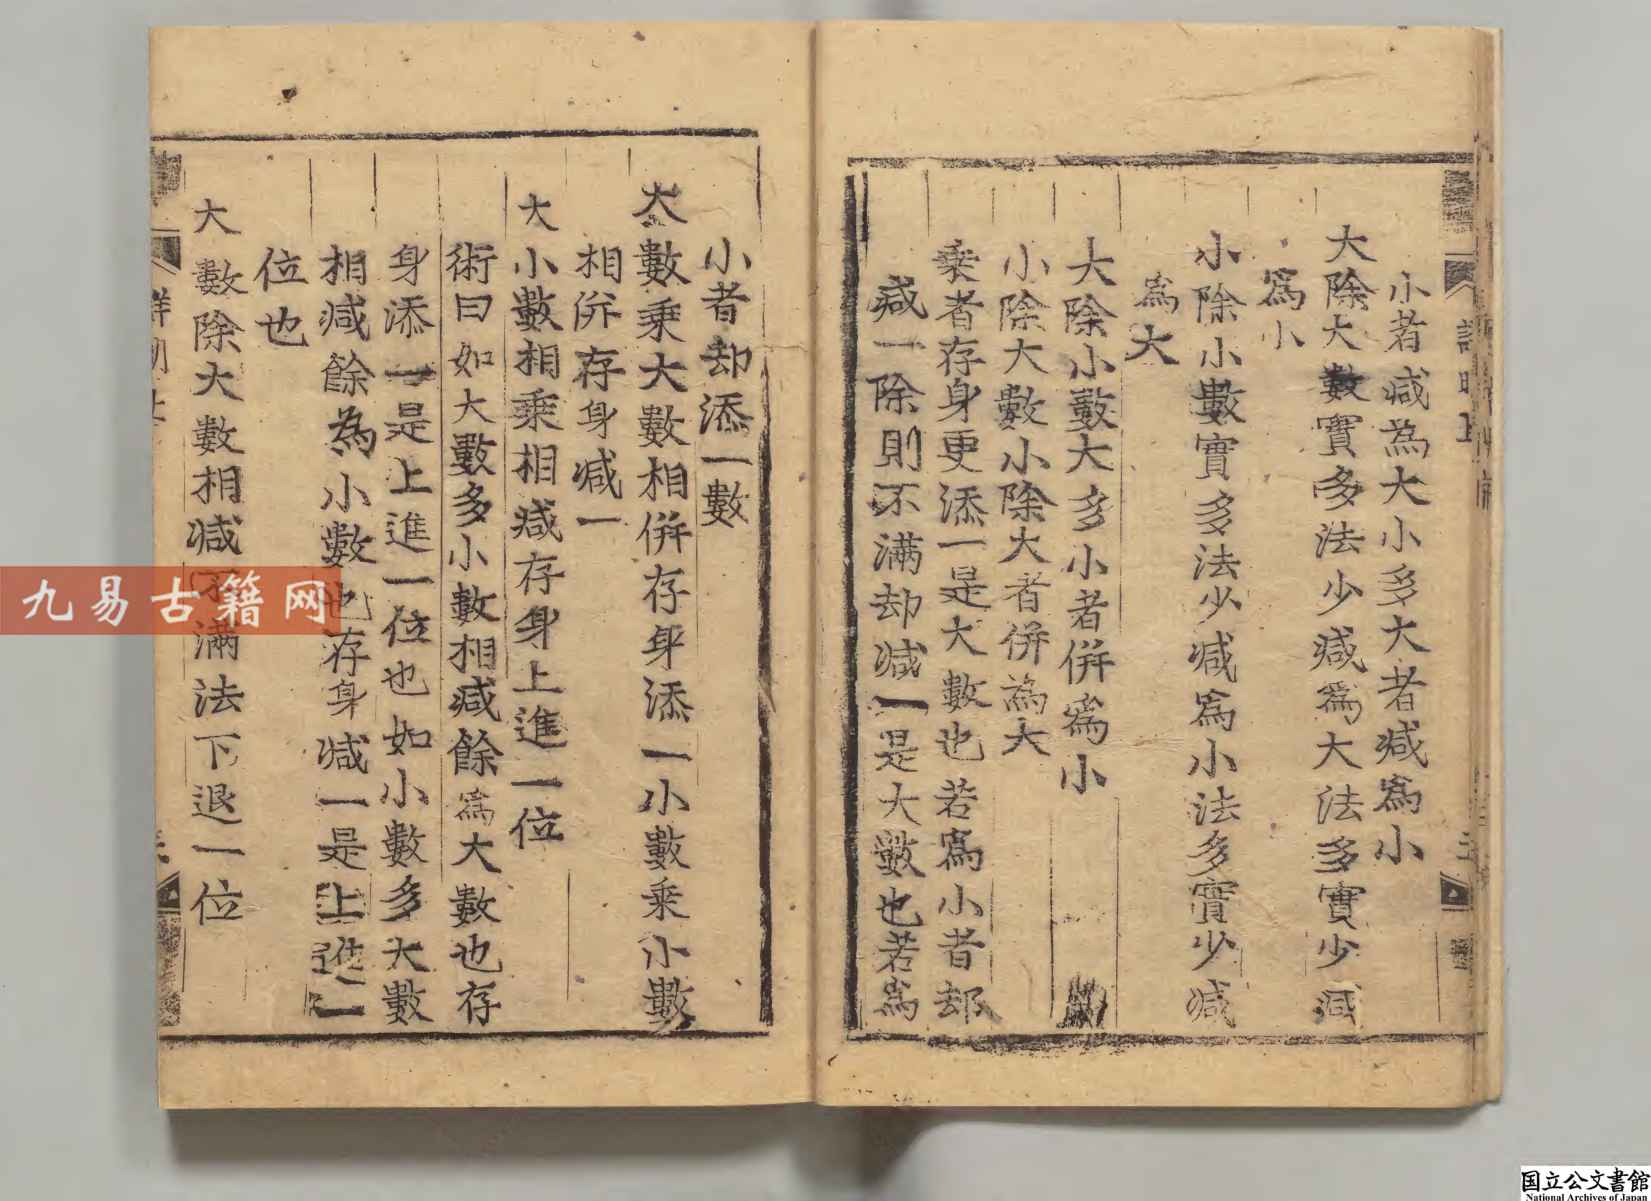 小者減為大小多大者減爲小
大除大數實多法少減爲大法多實少減
爲小
小除小數實多法少減爲小法多實少減
爲大
大除小數大多小者併爲小
小除大數小除大者併為大
乘者存身更添一是大數也若爲小者却
減一除則不滿却減一是大數也若爲
小者却添一數
大數乘大數相併存身添一小數乘小數
相併存身減一
大小數相乘相減存身上進一位
術曰如大數多小數相減餘爲大數也存
身添一是上進一位也如小數多大數
相減餘為小數也存身減一是上進一
位也
大數除大數相減不滿法下退一位
九易古籍网
国立公文書館
National Archives of Japan